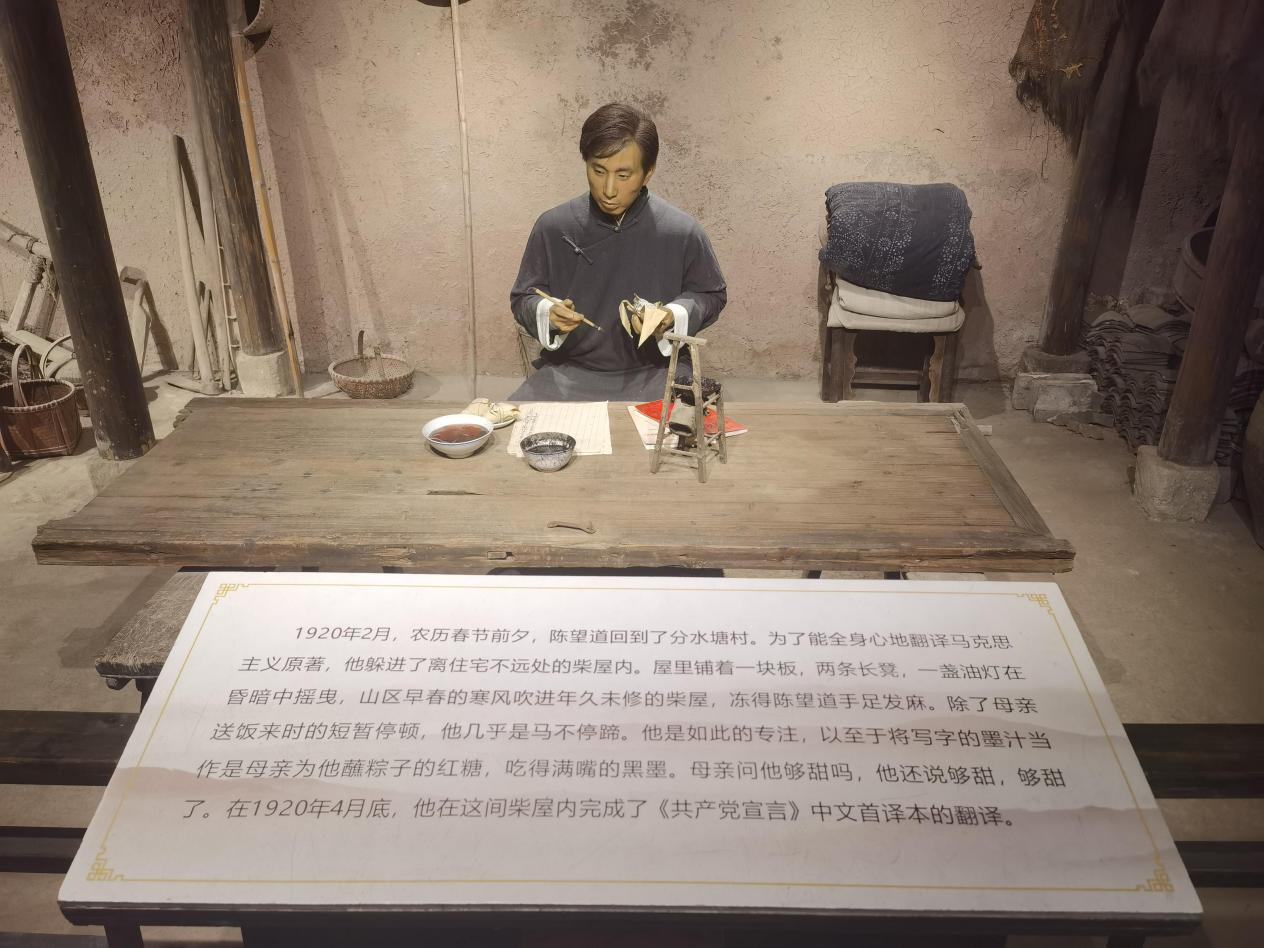 1920年2月，农历春节前夕，陈望道回到了分水塘村。为了能全身心地翻译马克思
主义原著，他躲进了离住宅不远处的柴屋内。屋里铺着一块板，两条长凳，一盏油灯在
昏暗中摇曳，山区早春的寒风吹进年久未修的柴屋，冻得陈望道手足发麻。除了母亲
送饭来时的短暂停顿，他几乎是马不停蹄。他是如此的专注，以至于将写字的墨汁当
作是母亲为他蘸粽子的红糖，吃得满嘴的黑墨。母亲问他够甜吗，他还说够甜，够甜
了。在1920年4月底，他在这间柴屋内完成了《共产党宣言》中文首译本的翻译。